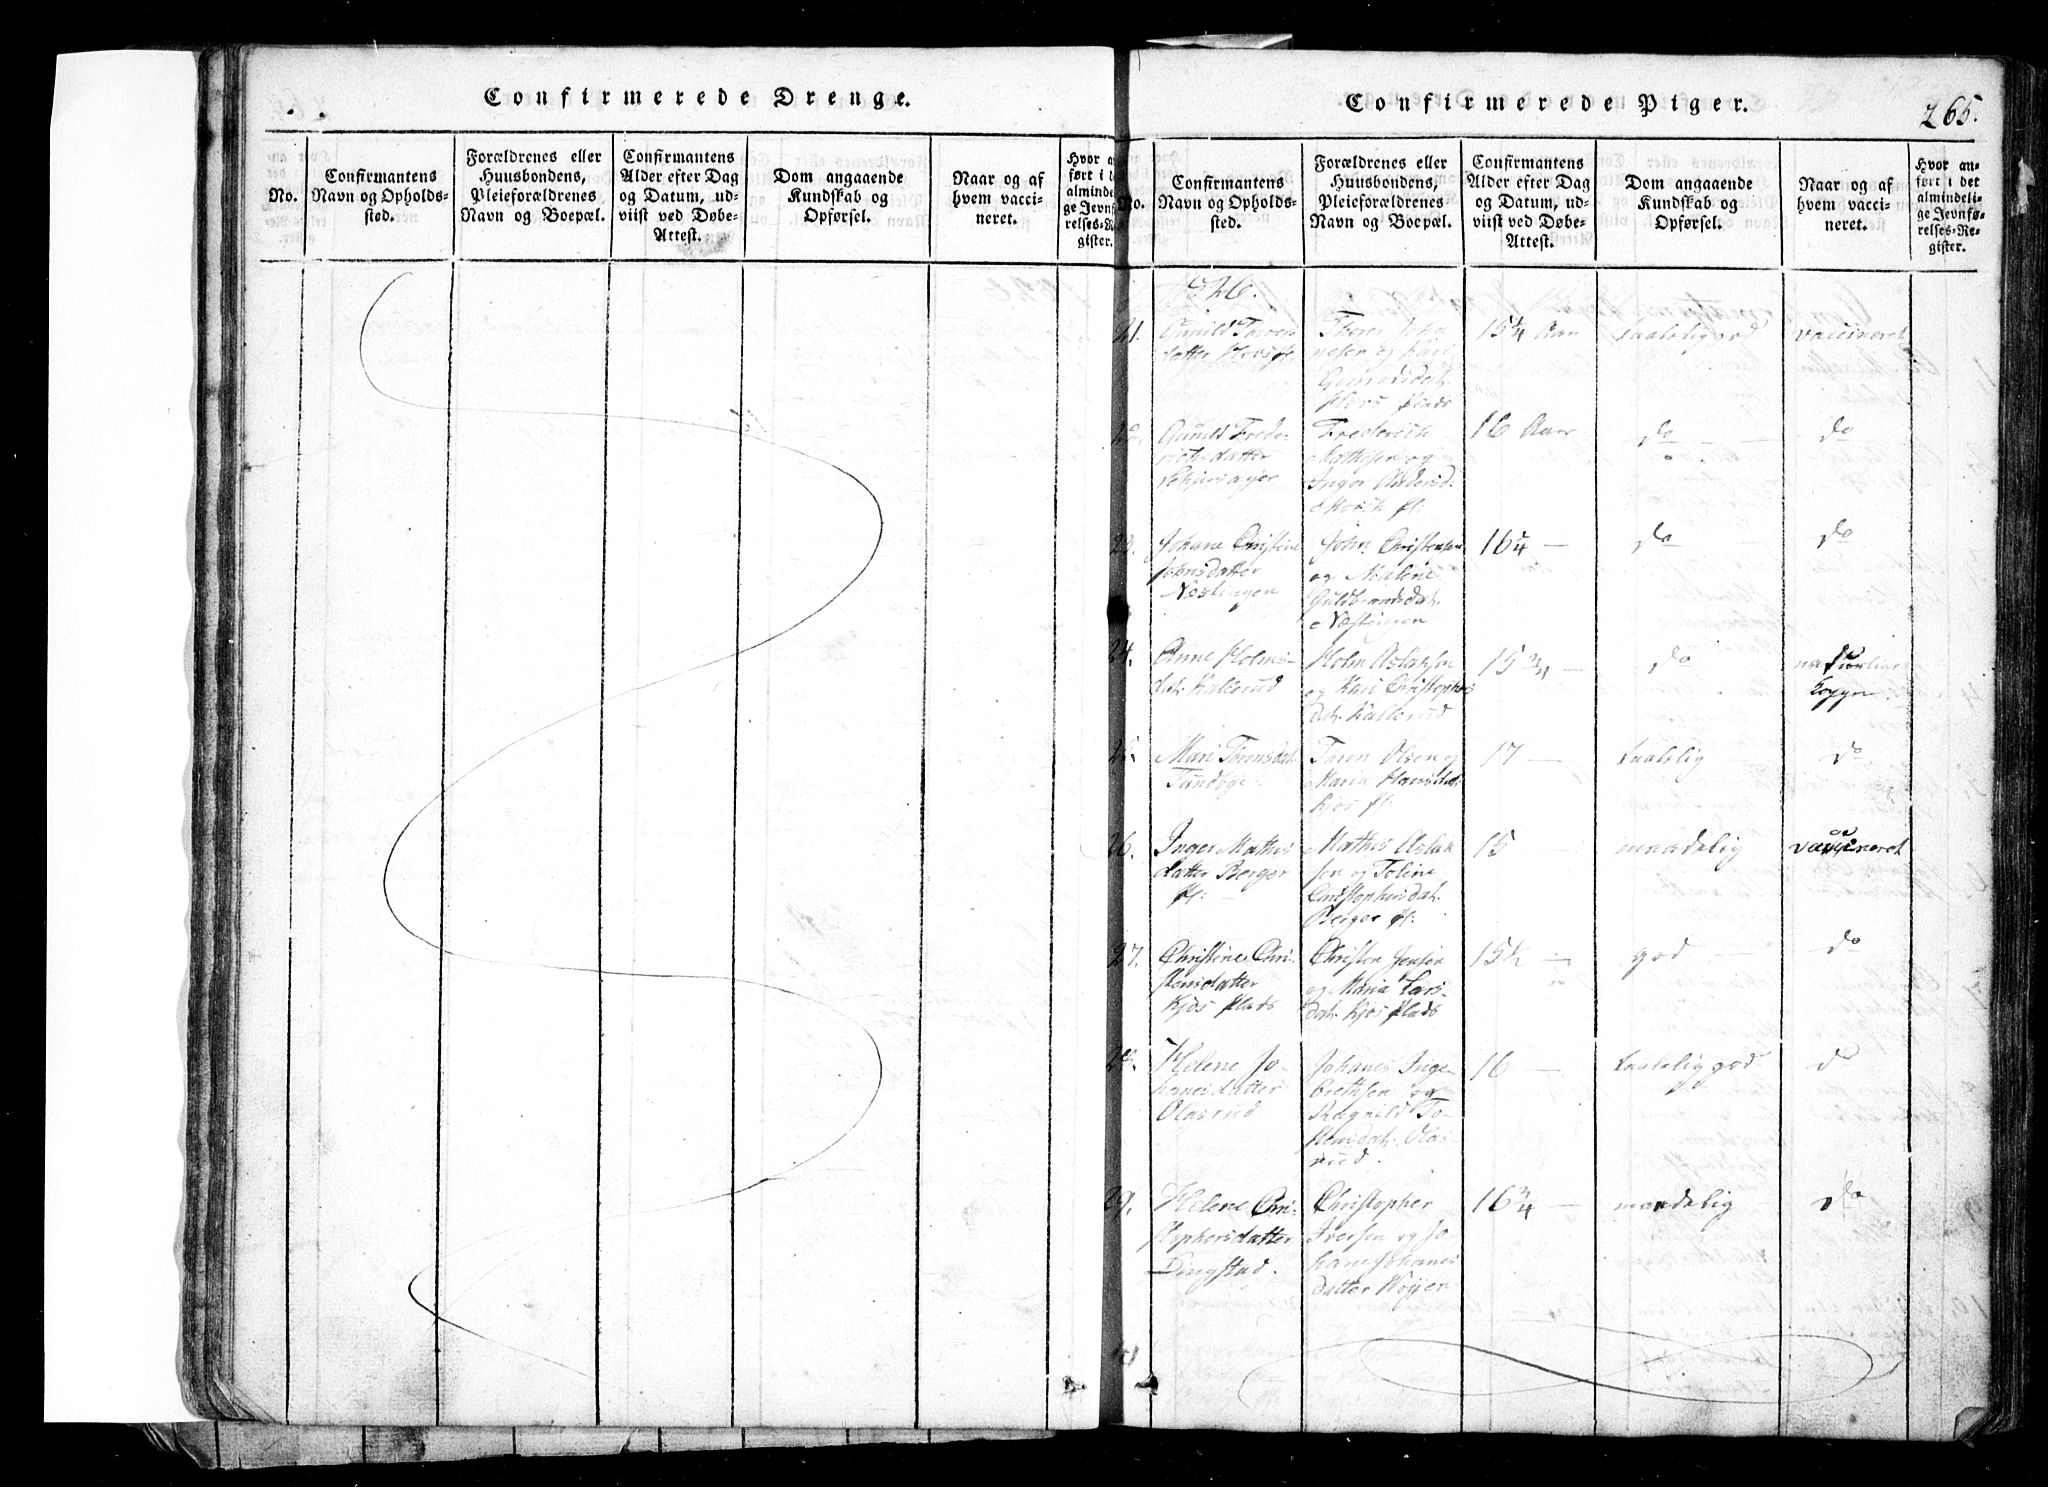 Confirmerede Drenge.
No.
Confirmantens
Navn og Opholds-
sted.
Forældrenes eller
Huusbondens,
Pleieforældrenes
Navn og Boepæl.
Confirmantens
Alder efter Dag
og Datum, ud-
viist ved Døbe-
Attest.
Dom angaaende
Kundskab og
Opførsel.
Naar og af
hvem vacci-
neret.
Hvor an
ført i d
alminde
ge Jevnf
relses-R
gister.
Confirmerede Piger.
265.
No.
Confirmantens
Navn og Opholds-
sted.
Forældrenes eller
Huusbondens,
Pleieforældrenes
Navn og Boepæl.
Confirmantens
Alder efter Dag
og Datum, ud-
viist ved Døbe-
Attest.
Dom angaaende
Kundskab og
Opførsel.
Naar og af
hvem vacci-
neret.
Hvor an-
ført i det
almindeli-
ge Jevnfø-
relses-Re-
gister.
1826.
21.
Gunild Thores
datter
Thores Joha
nesen og Kari
plads
15 1/4 Aar
taalelig god
vaccineret
Gunild Frede-
datter
Frederich
Mathisen og
Inger Anders d.
pl:
16 Aar
do
do
Johane Christine
Johnsdatter
Næstingen
John Christensen
og Malene
Guldbrandsdat.
Næstingen
16 1/4 —
do
do
24.
Anne Holms-
dat. Kallerud
Holm Aslaksen
og Kari Christophers
dat. Kallerud
15 3/4 —
do
naturlige
kopper
Mari Torensdat.
Toren Olsen og
Maria Hansdat.
Kjos pl:
17 —
taalelig
do
26.
Inger Mathis
datter Berger
pl: —
Mathis Aslak
sen og Toline
Christophersdat.
Berger pl:
15 —
maadelig
vaccineret
27.
Christine Chri-
stensdatter
Kjos plads
Christen Jensen
og Maria Lars-
dat. Kjos plads
15 1/2 —
god
do
28.
Helene Jo-
hanesdatter
Olasrud
Johanes Inge-
brethsen og
Ragnild To-
stensdat. Olas-
rud.
16 —
taalelig god
do
29.
Helene Chri-
stophersdatter
Dingstad.
Christopher
Iversen og Jo
hane Johanes
datter
16 3/4 —
maadelig
do